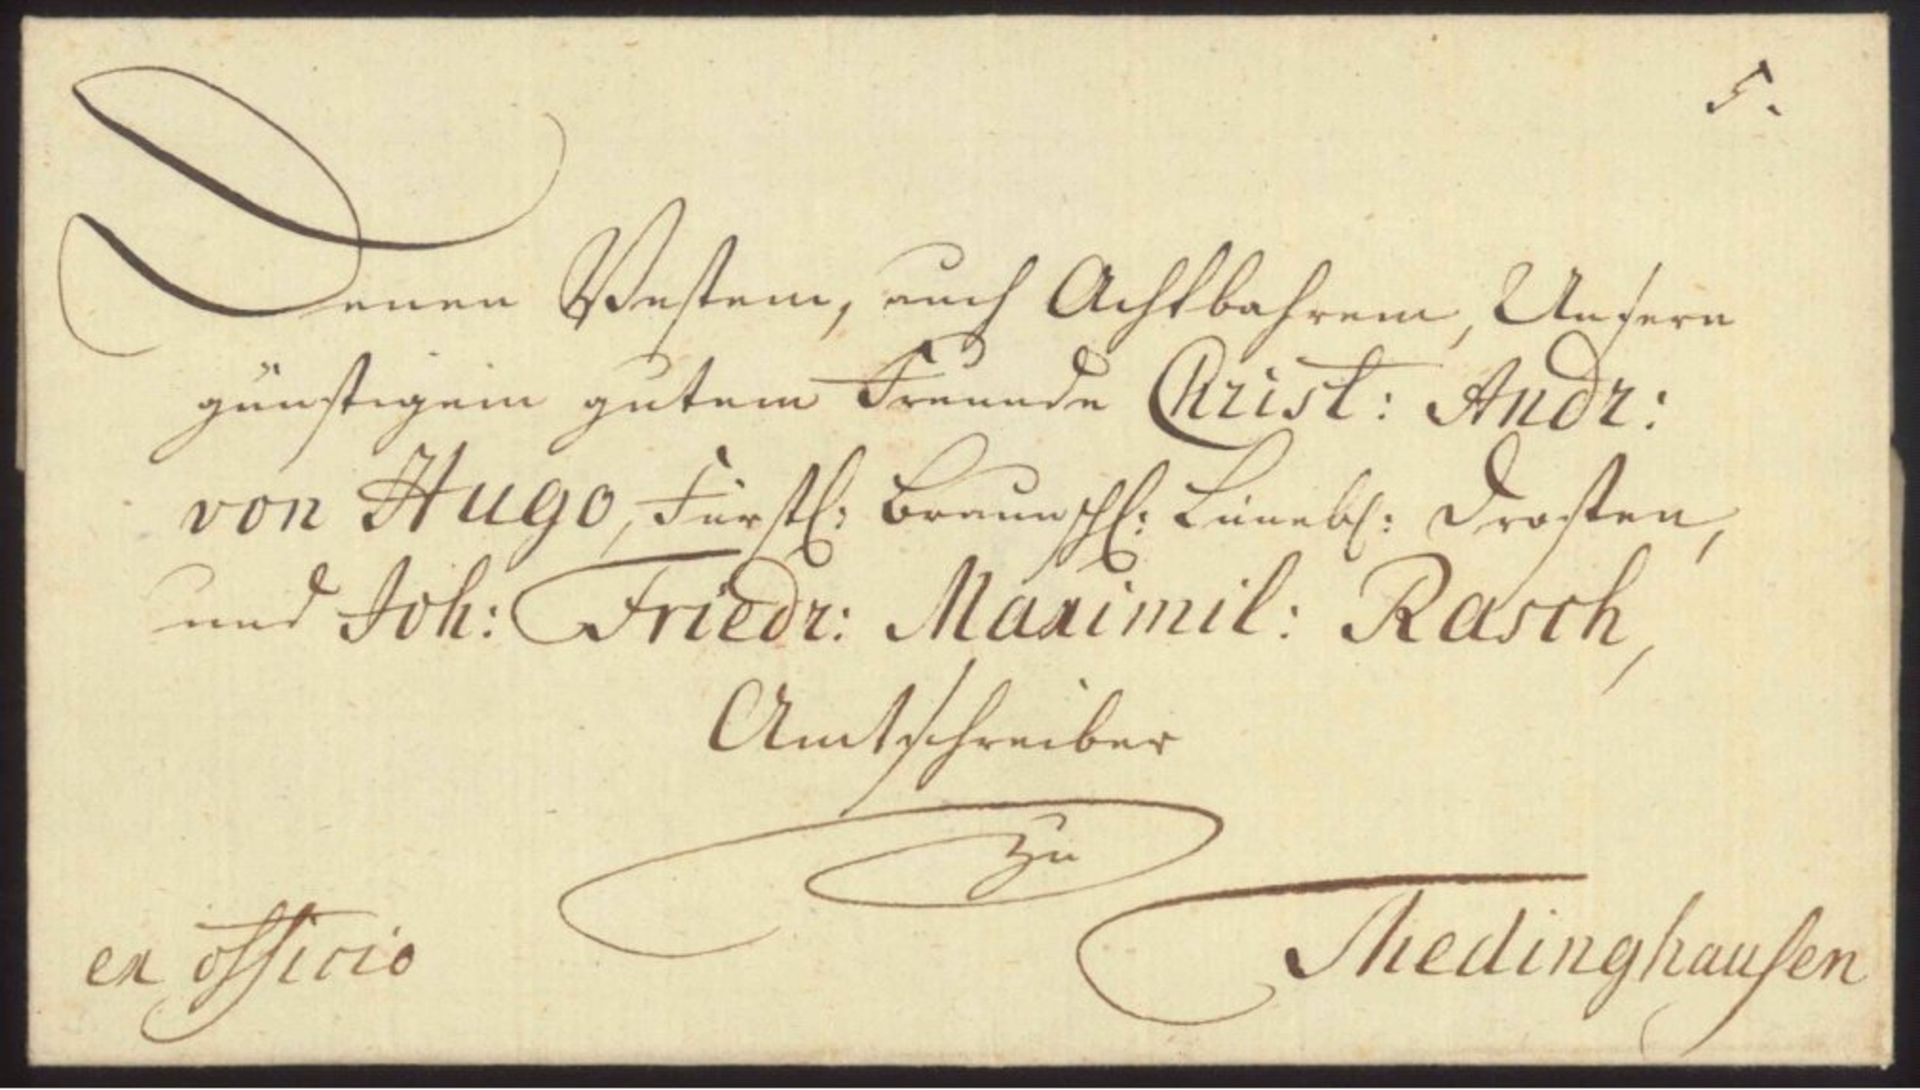 Denen Vestem, auch Achtbahrem, Unsern
günstigem gutem Freunde Christ: Andr:
von Hugo, Fürstl: Braunschl: Lünebl: Drosten,
und Joh: Friedr: Maximil: Rasch,
Amtschreiber
zu
ex officio Thedinghausen